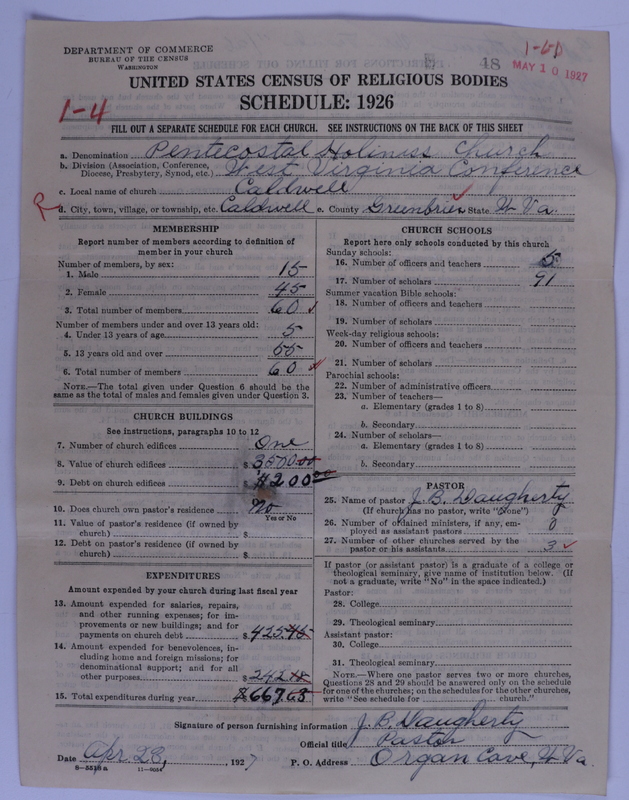 DEPARTMENT OF COMMERCE
BUREAU OF THE CENSUS
WASHINGTON
1-61
48
MAY 10 1927
UNITED STATES CENSUS OF RELIGIOUS BODIES
SCHEDULE: 1926
1-4
FILL OUT A SEPARATE SCHEDULE FOR EACH CHURCH. SEE INSTRUCTIONS ON THE BACK OF THIS SHEET
a. Denomination Pentecostal Holiness Church
b. Division (Association, Conference, Diocese, Presbytery, Synod, etc.) West Virginia Conference
c. Local name of church Caldwell
d. City, town, village, or township, etc. Caldwell e. County Greenbrier State W Va.
MEMBERSHIP
Report number of members according to definition of
member in your church
Number of members, by sex:
1. Male 15
2. Female 45
3. Total number of members 60
Number of members under and over 13 years old:
4. Under 13 years of age 5
5. 13 years old and over 55
6. Total number of members 60
NOTE.—The total given under Question 6 should be the
same as the total of males and females given under Question 3.
CHURCH BUILDINGS
See instructions, paragraphs 10 to 12
7. Number of church edifices One
8. Value of church edifices $ 3500 00
9. Debt on church edifices $200 00
10. Does church own pastor's residence No
Yes or No
11. Value of pastor's residence (if owned by
church) $
12. Debt on pastor's residence (if owned by
church) $
EXPENDITURES
Amount expended by your church during last fiscal year
13. Amount expended for salaries, repairs,
and other running expenses; for im-
provements or new buildings; and for
payments on church debt $ 425.45
14. Amount expended for benevolences, in-
cluding home and foreign missions; for
denominational support; and for all
other purposes $ 242 18
15. Total expenditures during year $667.63
CHURCH SCHOOLS
Report here only schools conducted by this church
Sunday schools:
16. Number of officers and teachers 5
17. Number of scholars 91
Summer vacation Bible schools:
18. Number of officers and teachers
19. Number of scholars
Week-day religious schools:
20. Number of officers and teachers
21. Number of scholars
Parochial schools:
22. Number of administrative officers
23. Number of teachers—
a. Elementary (grades 1 to 8)
b. Secondary
24. Number of scholars—
a. Elementary (grades 1 to 8)
b. Secondary
PASTOR
25. Name of pastor J. B. Daugherty
(If church has no pastor, write "None")
26. Number of ordained ministers, if any, em-
ployed as assistant pastors 0
27. Number of other churches served by the
pastor or his assistants 3
If pastor (or assistant pastor) is a graduate of a college or
theological seminary, give name of institution below. (If
not a graduate, write "No" in the space indicated.)
Pastor:
28. College
29. Theological seminary
Assistant pastor:
30. College
31. Theological seminary
NOTE.—Where one pastor serves two or more churches,
Questions 28 and 29 should be answered only on the schedule
for one of the churches; on the schedules for the other churches,
write "See schedule for church."
Signature of person furnishing information J. B. Daugherty
Official title Pastor
Date Apr. 28, 1927 P. O. Address Organ Cave, W Va.
8-5518a 11-9051